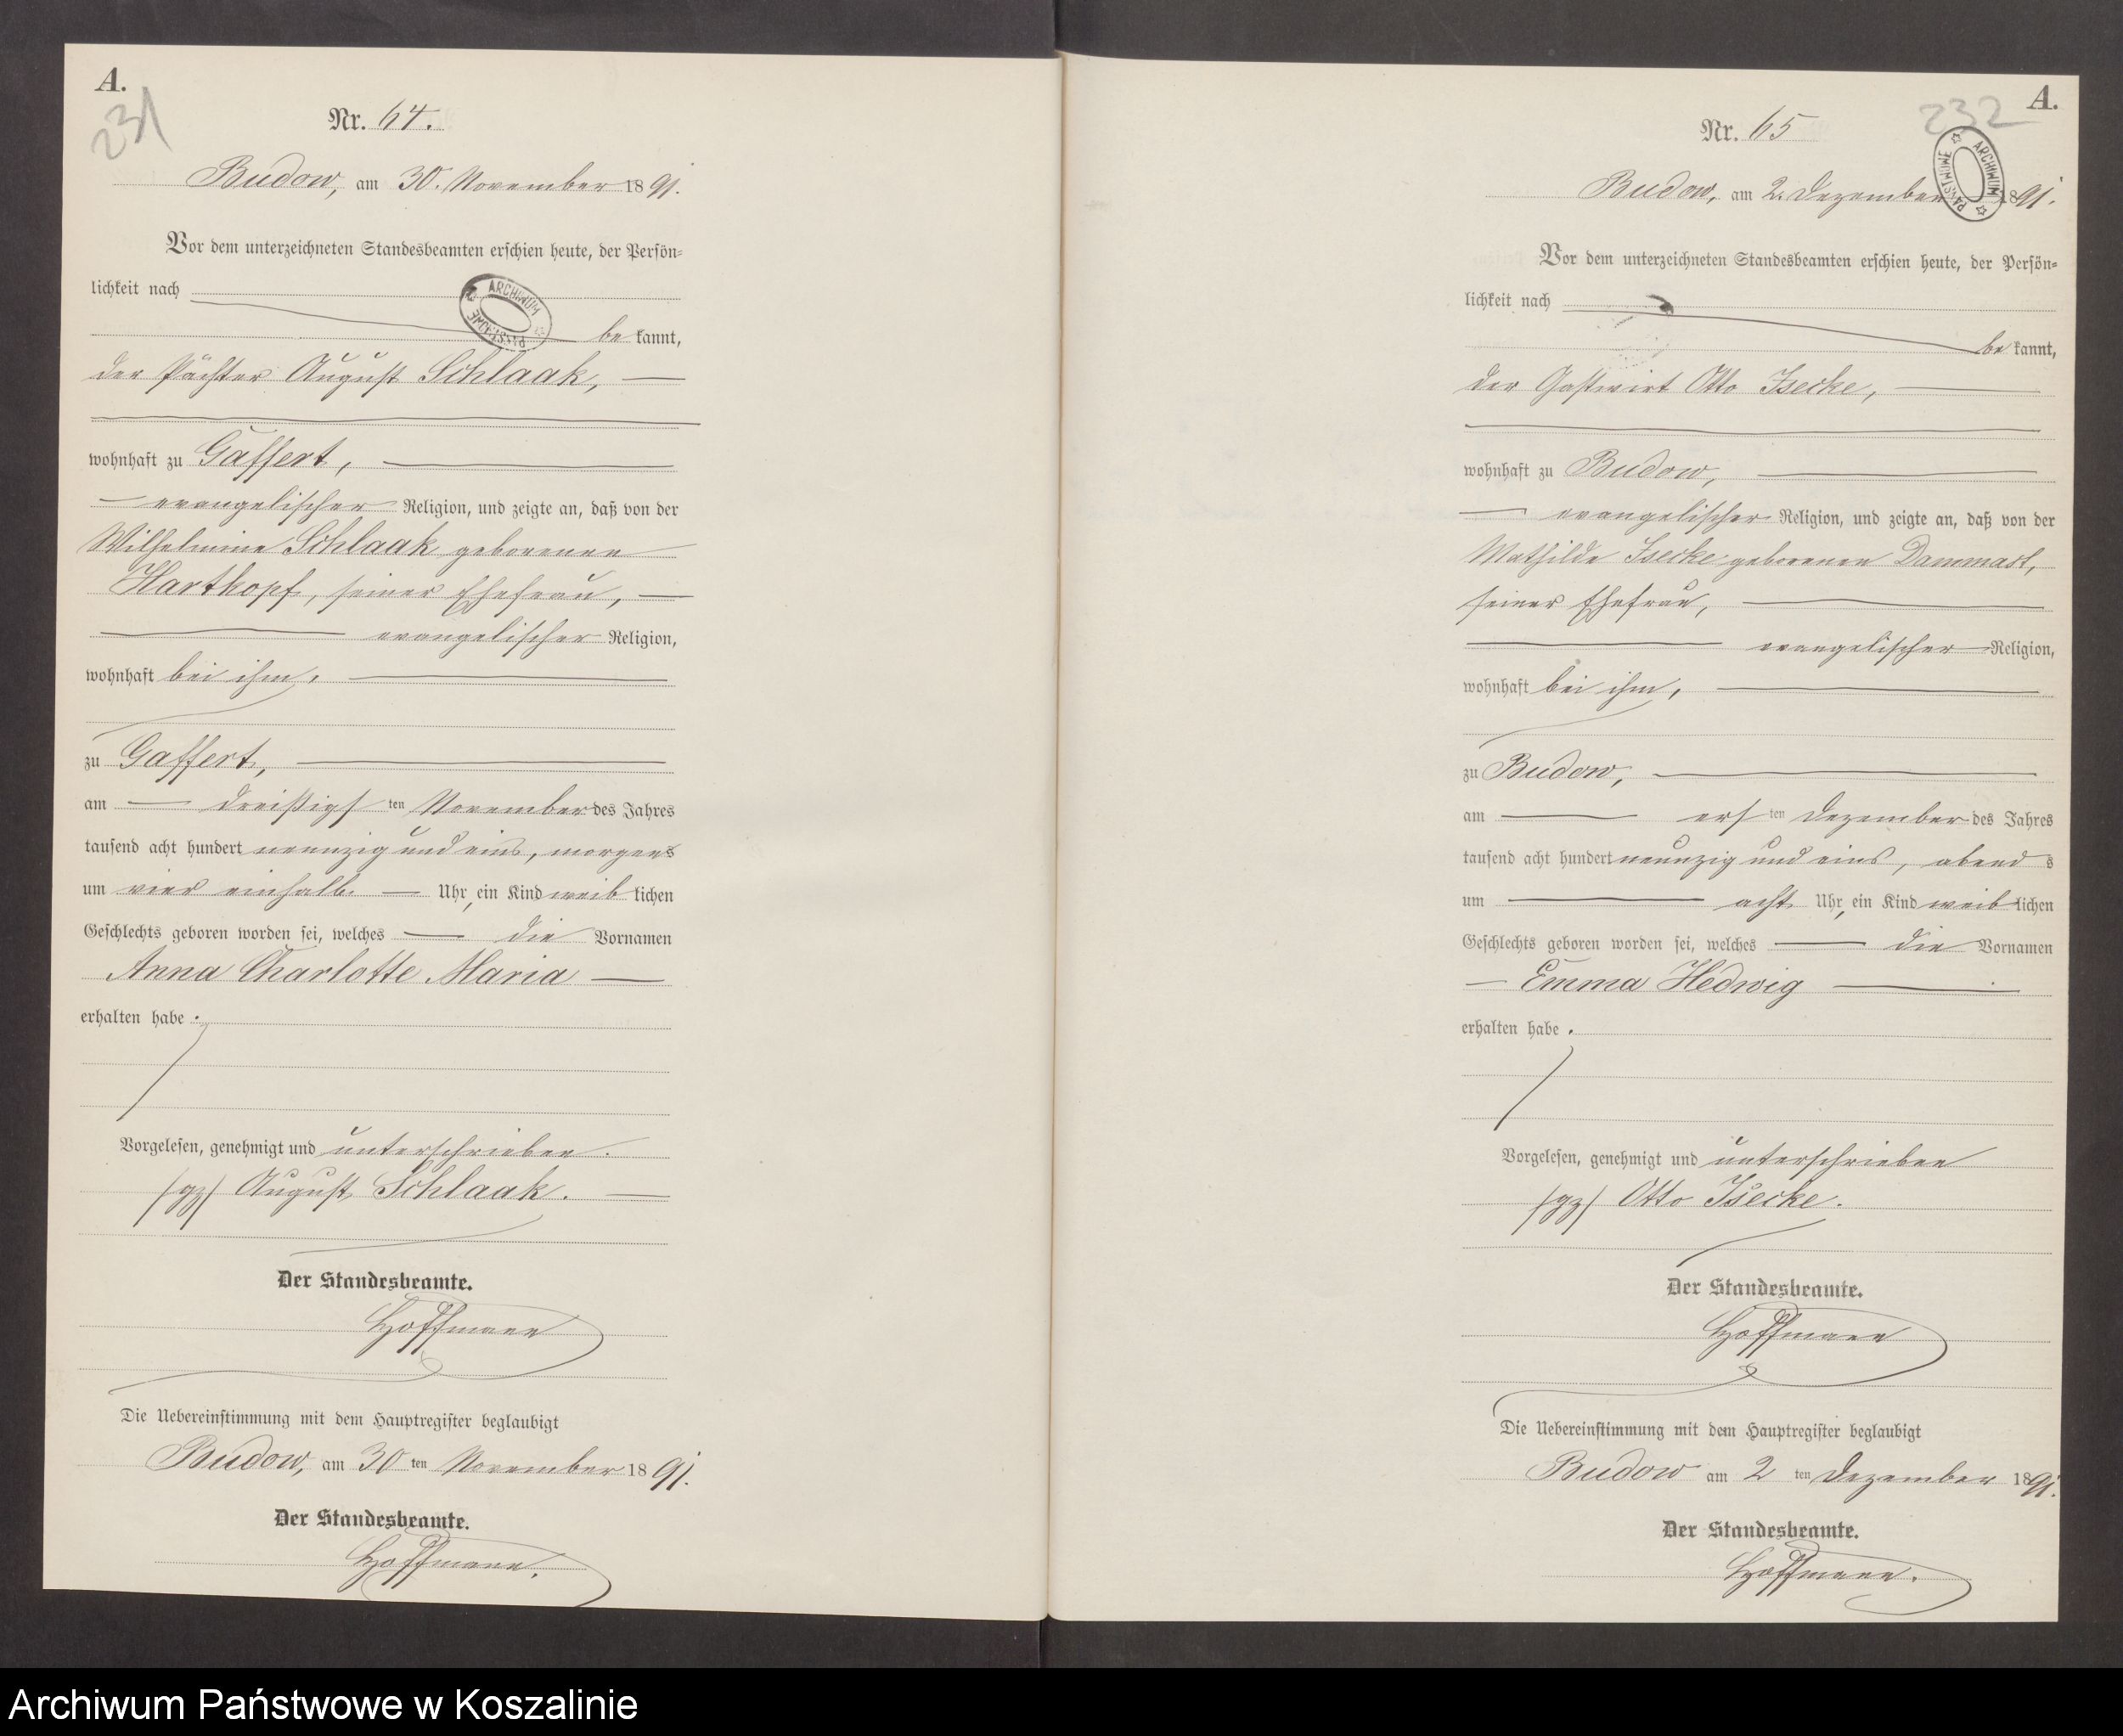 A.
231
Nr. 64.
Budow, am 30. November 1891.
Vor dem unterzeichneten Standesbeamten erschien heute, der Persön=
lichkeit nach
ARCHIWUM PAŃSTWOWE
be kannt,
der Pächter August Schlaak,
wohnhaft zu Gaffert,
evangelischer Religion, und zeigte an, daß von der
Wilhelmine Schlaak geborenen
Hartkopf, seiner Ehefrau,
evangelischer Religion,
wohnhaft bei ihm,
zu Gaffert,
am dreißigsten November des Jahres
tausend acht hundert neunzig und eins, morgens
um vier einhalb Uhr, ein Kind weiblichen
Geschlechts geboren worden sei, welches die Vornamen
Anna Charlotte Maria
erhalten habe.
Vorgelesen, genehmigt und unterschrieben.
(gz) August Schlaak.
Der Standesbeamte.
Hoffmann
Die Uebereinstimmung mit dem Hauptregister beglaubigt
Budow, am 30ten November 1891.
Der Standesbeamte.
Hoffmann.
A.
232
Nr. 65
ARCHIWUM PAŃSTWOWE
Budow, am 2. Dezember 1891.
Vor dem unterzeichneten Standesbeamten erschien heute, der Persön=
lichkeit nach
be kannt,
der Gastwirt Otto Isecke,
wohnhaft zu Budow,
evangelischer Religion, und zeigte an, daß von der
Mathilde Isecke geborenen Dammast,
seiner Ehefrau,
evangelischer Religion,
wohnhaft bei ihm,
zu Budow,
am ersten Dezember des Jahres
tausend acht hundert neunzig und eins, abends
um acht Uhr, ein Kind weiblichen
Geschlechts geboren worden sei, welches die Vornamen
Emma Hedwig
erhalten habe.
Vorgelesen, genehmigt und unterschrieben
(gz) Otto Isecke.
Der Standesbeamte.
Hoffmann
Die Uebereinstimmung mit dem Hauptregister beglaubigt
Budow am 2ten Dezember 1891.
Der Standesbeamte.
Hoffmann.
Archiwum Państwowe w Koszalinie